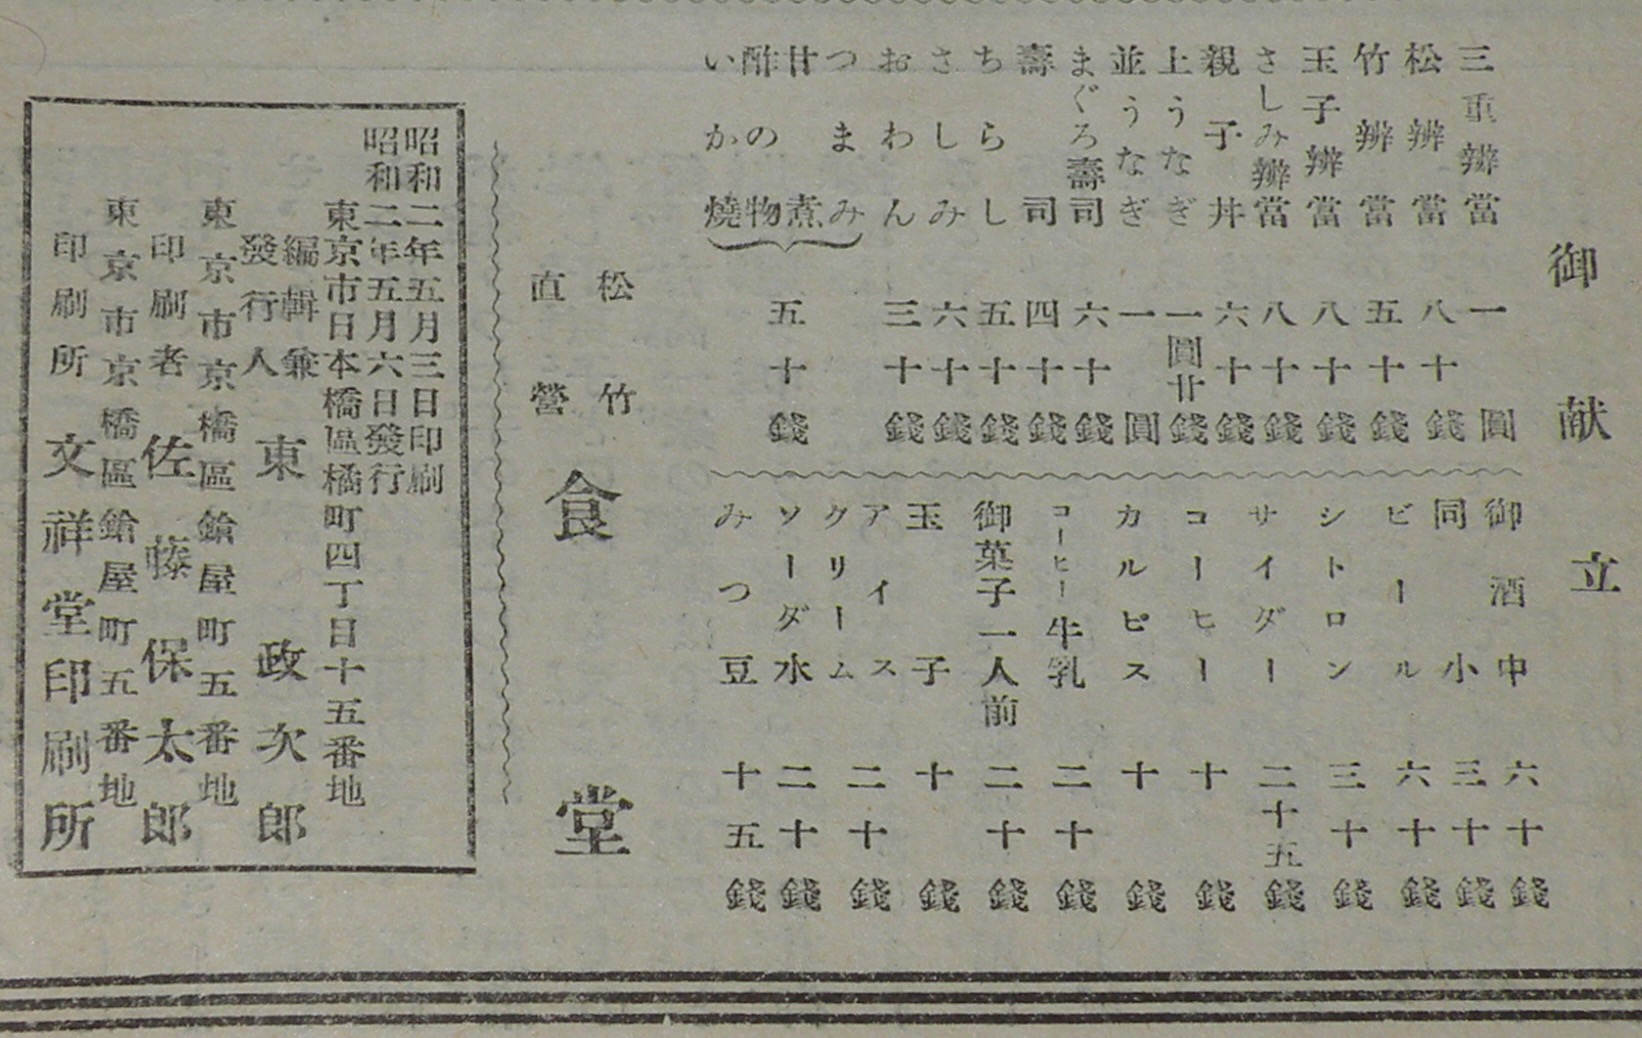 御献立
三重辨當 一圓
松辨當 八十錢
竹辨當 五十錢
玉子辨當 八十錢
さしみ辨當 八十錢
親子丼 六十錢
上うなぎ 一圓廿錢
並うなぎ 一圓
まぐろ壽司 六十錢
壽司 四十錢
ちらし 五十錢
さしみ 六十錢
おわん 三十錢
つまみ
甘煮
酢の物
いか燒
五十錢
御酒中 六十錢
同小 三十錢
ビール 六十錢
シトロン 三十錢
サイダー 二十五錢
コーヒー 十錢
カルピス 十錢
コーヒー牛乳 二十錢
御菓子一人前 二十錢
玉子 十錢
アイス
クリーム 二十錢
ソーダ水 二十錢
みつ豆 十五錢
松竹
直營
食堂
昭和二年五月三日印刷
昭和二年五月六日發行
東京市日本橋區橘町四丁目十五番地
編輯兼
發行人 東政次郎
東京市京橋區鎗屋町五番地
印刷者 佐藤保太郎
東京市京橋區鎗屋町五番地
印刷所 文祥堂印刷所